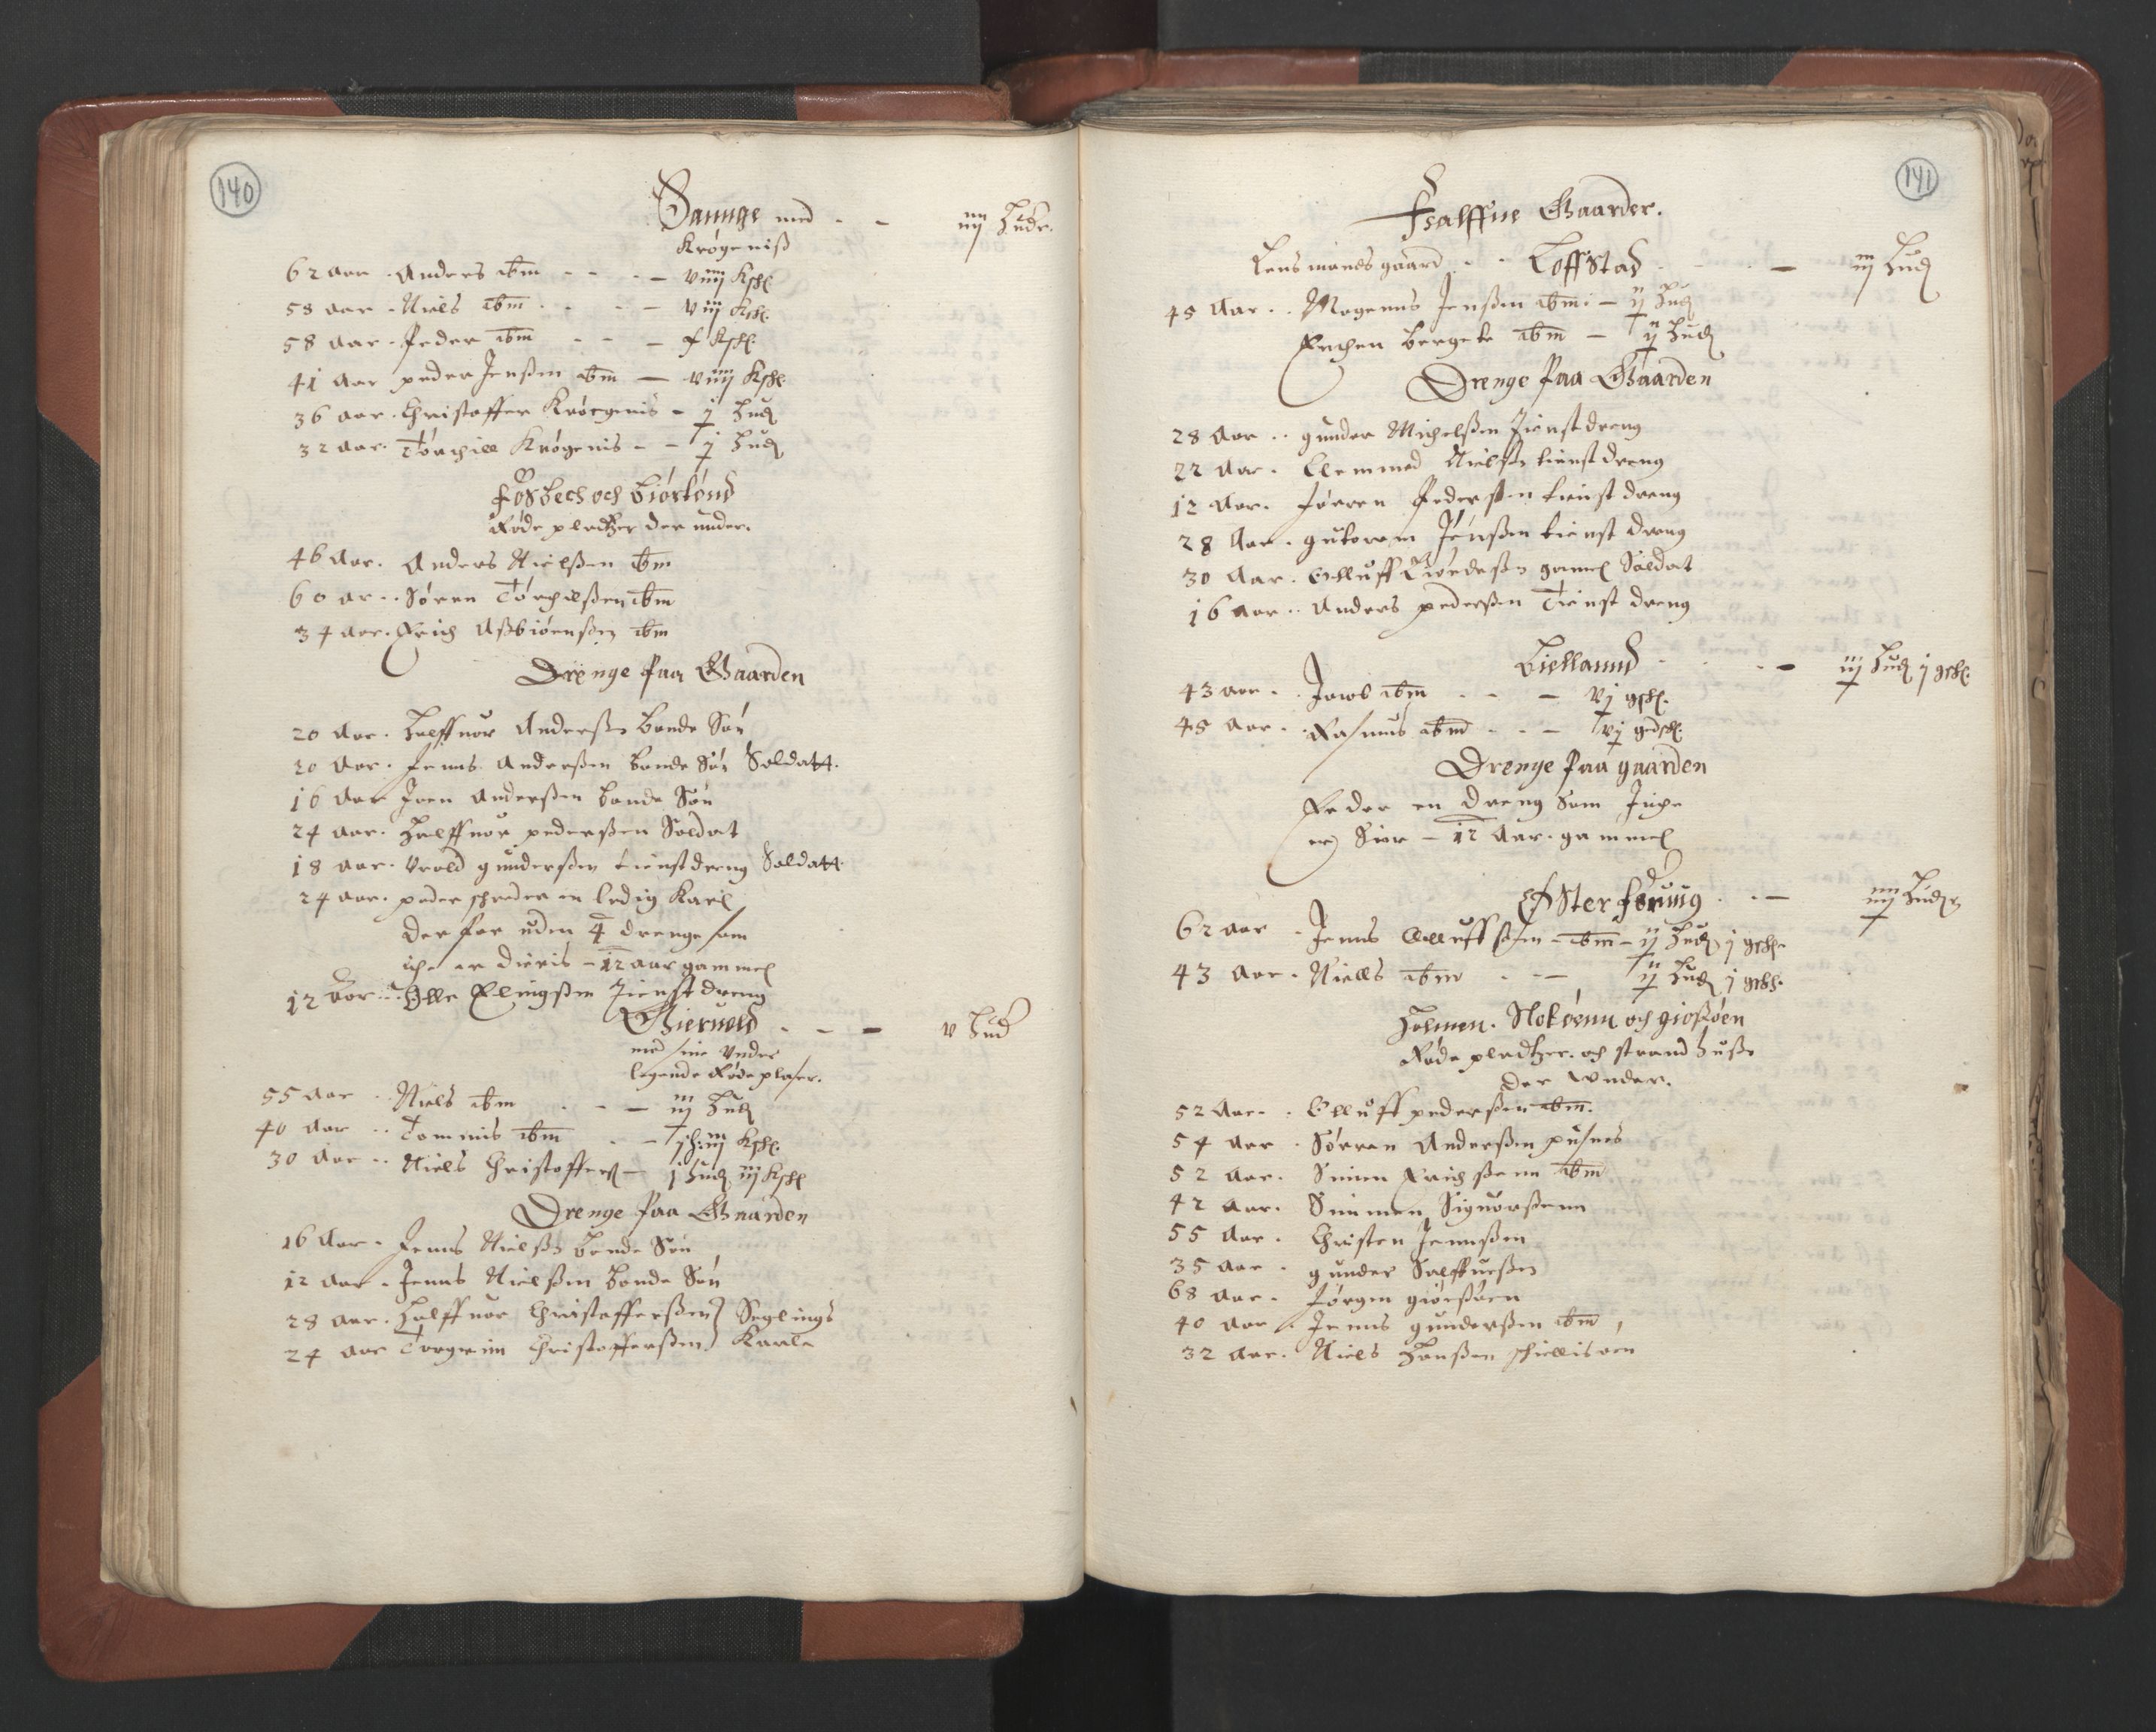 140
Saunge med - - iiij Hudr.
Krøgeniß
62 aar . Anders ibm - - - - viiij Ksk.
58 aar - Niels ibm . . - - viij Ksk.
58 aar . Peder ibm - - - x Ksk.
41 aar peder Jenßen ibm — viiij Ksk.
36 aar . Christoffer Krøegenis - j Hud
32 aar. Törchill Krøgenis - - j Hud
Fosbech och biørlønd
Røde pladtzer der under.
46 Aar. Anders Nielßen ibm
60 ar . . Søren Törchilßen ibm
34 aar. Erich Aßbiøenßen ibm
Drenge paa Gaarden
20 Aar. Halffuor Anderßen bonde Søn
20 Aar. Jenns Anderßen bonde Søn Soldatt.
16 Aar Joen Anderßen bonde Søn
24 aar. Halffuor pederßen Soldat
18 aar. Wrold gunderßen tienstdreng Soldatt.
24 aar. peder schreder en ledig Karll
der for uden 4 drenge som
iche er dieris - 12 aar gammel
12 aar . . Olle Elingßen Tienstdreng
Gieruold . - — v Hud
med sine Under
legende Røde plaser.
55 aar . Niels ibm . . - — iij Hud
40 aar . . Tommis ibm . . - sk: iij Ksk.
30 Aar . . Niels Christofferß — j Hud iij Ksk
Drenge paa Gaarden
16 Aar . Jenns Nielßen bonde Søn
12 aar . Jenns Nielßen bonde Søn
28 aar. Halffuor Christofferßen } Seglings
24 aar Torgrim Christofferßen } Karle
141
Halffue Gaarder.
Lensmands gaard . . Loffstad . . — iiij Hud
45 Aar . . Mogenns Jenßen ibm: — ij Hud
Enchen bergete ibm — ij Hud
Drenge paa Gaarden
28 Aar . . gunder Michelßen Tienstdreng
22 Aar . Clemmed Nielßen tienstdreng
12 Aar. Jørren Pederßen tienst dreng
28 Aar . gutorem Jenßen tienst dreng
30 Aar . Olluff Tivedeßen gamel Soldat
16 aar . . Anders pederßen Tienst dreng
Biellannd . . . — iij Hud j gsk.
43 aar . . Jacob ibm . . - — vj gsk.
45 aar . . Rasmus ibm - . . — vj gedsk.
Drenge paa gaarden
Peder en dreng som Inge
er Kior — 12 Aar . gammel
Øster feruig . . — iiij Hudr
62 aar . Jenns Olluffsøn - ibm - ij Hud j gsk.
43 Aar . Niells ibm . . — ij Hud j gsk.
Holmen. Slokøenn och gioßøen
Røde pladtzer. och strand huße
der under.
52 Aar . . Olluff pederßen ibm.
54 aar . Sørren Anderßen pusnes
52 aar. Simen Erichßenn ibm
42 aar. Simmen Siguorßenn
55 Aar . Christen Jennßen
35 aar . gunder Salffueßen
68 aar . Jørgen giøeßøen
40 aar . Jenns gunderßen ibm ,
32 aar. Niels Hanßen schiellisøen